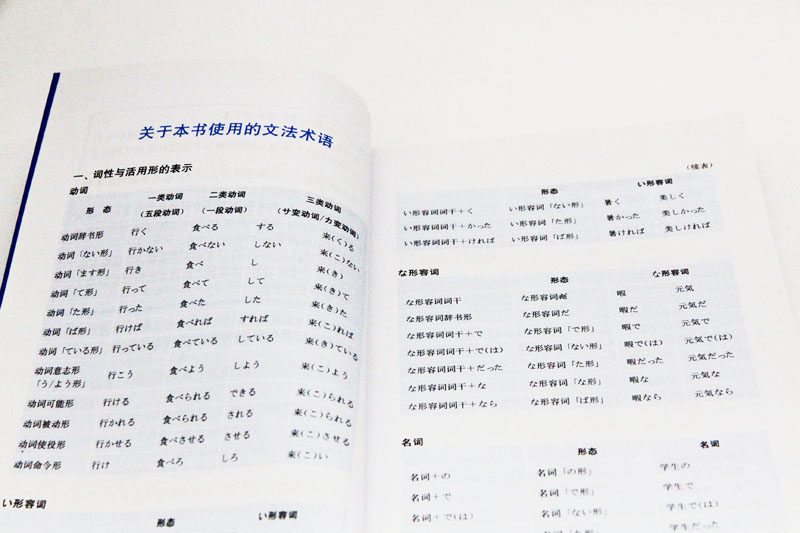 关于本书使用的文法术语
一、词性与活用形的表示
动词
形 态 一类动词 二类动词 三类动词
（五段动词） （一段动词） （サ变动词/カ变动词）
动词辞书形 行く 食べる する 来(く)る
动词「ない形」 行かない 食べない しない 来(こ)ない
动词「ます形」 行き 食べ し 来(き)
动词「て形」 行って 食べて して 来(き)て
动词「た形」 行った 食べた した 来(き)た
动词「ば形」 行けば 食べれば すれば 来(く)れば
动词「ている形」 行っている 食べている している 来(き)ている
动词意志形
「う/よう形」 行こう 食べよう しよう 来(こ)よう
动词可能形 行ける 食べられる できる 来(こ)られる
动词被动形 行かれる 食べられる される 来(こ)られる
动词使役形 行かせる 食べさせる させる 来(こ)させる
动词命令形 行け 食べろ しろ 来(こ)い
い形容词
形态 い形容词
（续表）
形态 い形容词
い形容词词干＋く い形容词「ない形」 暑く 美しく
い形容词词干＋かった い形容词「た形」 暑かった 美しかった
い形容词词干＋ければ い形容词「ば形」 暑ければ 美しければ
な形容词
形态 な形容词
な形容词词干 な形容词 暇 元気
な形容词辞书形 な形容词だ 暇だ 元気だ
な形容词词干＋で な形容词「で形」 暇で 元気で
な形容词词干＋で(は) な形容词「ない形」 暇で(は) 元気で(は)
な形容词词干＋だった な形容词「た形」 暇だった 元気だった
な形容词词干＋な な形容词「な形」 暇な 元気な
な形容词词干＋なら な形容词「ば形」 暇なら 元気なら
名词
形态 名词
名词＋の 名词「の形」 学生の
名词＋で 名词「で形」 学生で
名词＋で(は) 名词「ない形」 学生で(は)
学生だった